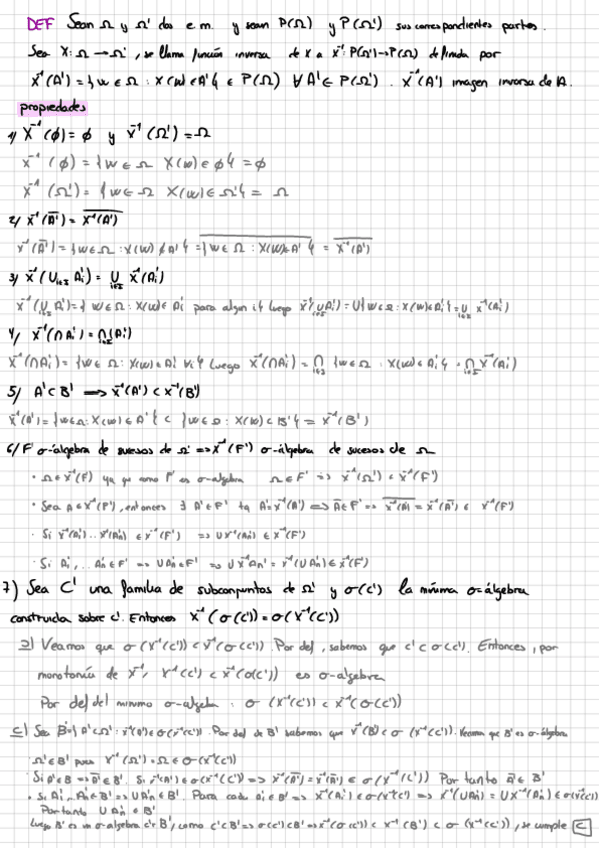 DEF Sean Ω y Ω' dos e.m. y sean P(Ω) y P(Ω') sus correspondientes partes.
Sea X: Ω → Ω', se llama función inversa de X a X⁻¹: P(Ω')→P(Ω) definida por
X⁻¹(A') = { w ∈ Ω : X(w) ∈ A' } ∈ P(Ω) ∀ A' ∈ P(Ω'). X⁻¹(A') imagen inversa de A.
propiedades
1/ X⁻¹(ϕ) = ϕ y X⁻¹(Ω') = Ω
X⁻¹(ϕ) = { w ∈ Ω X(w) ∈ ϕ } = ϕ
X⁻¹(Ω') = { w ∈ Ω X(w) ∈ Ω' } = Ω
2/ X⁻¹(A̅') = \overline{X⁻¹(A')}
X⁻¹(A̅') = { w ∈ Ω : X(w) ∉ A' } = \overline{{ w ∈ Ω : X(w) ∈ A' }} = \overline{X⁻¹(A')}
3/ X⁻¹(∪_{i∈I} A'i) = ∪_{i∈I} X⁻¹(A'i)
X⁻¹(∪_{i∈I} A'i) = { w ∈ Ω : X(w) ∈ A'i para algun i } luego X⁻¹(∪_{i∈I} A'i) = ∪ { w ∈ Ω : X(w) ∈ A'i } = ∪_{i∈I} X⁻¹(A'i)
4/ X⁻¹(∩ A'i) = ∩_{i∈I} (A'i)
X⁻¹(∩ A'i) = { w ∈ Ω : X(w) ∈ A'i ∀i } luego X⁻¹(∩ A'i) = ∩_{i∈I} { w ∈ Ω : X(w) ∈ A'i } = ∩_{i∈I} X⁻¹(A'i)
5/ A' ⊂ B' ⟹ X⁻¹(A') ⊂ X⁻¹(B')
X⁻¹(A') = { w ∈ Ω : X(w) ∈ A' } ⊂ { w ∈ Ω : X(w) ⊂ B' } = X⁻¹(B')
6/ F' σ-álgebra de sucesos de Ω' ⟹ X⁻¹(F') σ-álgebra de sucesos de Ω
· Ω ∈ X⁻¹(F) ya que como F' es σ-algebra Ω ∈ F' ⟹ X⁻¹(Ω') ∈ X⁻¹(F')
· Sea A ∈ X⁻¹(F'), entonces ∃ A' ∈ F' tq A = X⁻¹(A') ⟹ A̅ ∈ F' ⟹ \overline{X⁻¹(A)} = X⁻¹(A̅') ∈ X⁻¹(F')
· Si X⁻¹(A'1)...X⁻¹(A'n) ∈ X⁻¹(F') ⟹ ∪X⁻¹(A'n) ∈ X⁻¹(F')
· Si A'1,...A'n ∈ F' ⟹ ∪A'n ∈ F' ⟹ ∪X⁻¹An' = X⁻¹(∪A'n) ∈ X⁻¹(F')
7) Sea C' una familia de subconjuntos de Ω' y σ(C') la mínima σ-álgebra
construida sobre C'. Entonces X⁻¹(σ(C')) = σ(X⁻¹(C'))
⊇) Veamos que σ(X⁻¹(C')) ⊂ X⁻¹(σ(C')). Por def, sabemos que C' ⊂ σ(C'). Entonces, por
monotonía de X⁻¹, X⁻¹(C') ⊂ X⁻¹(σ(C')) es σ-algebra
Por def del minimo σ-algebra : σ(X⁻¹(C')) ⊂ X⁻¹(σ(C'))
⊆) Sea B' = { A' ⊂ Ω' : X⁻¹(A') ∈ σ(X⁻¹(C')) }. Por def de B' sabemos que X⁻¹(B') ⊂ σ(X⁻¹(C')). Veamos que B' es σ-álgebra
· Ω' ∈ B' pues X⁻¹(Ω') = Ω ∈ σ(X⁻¹(C'))
· Si A' ∈ B ⟹ A̅' ∈ B'. Si X⁻¹(A') ∈ σ(X⁻¹(C')) ⟹ X⁻¹(A̅') = X⁻¹(A̅') ∈ σ(X⁻¹(C')) Por tanto A̅ ∈ B'
· Si A'1...A'n ∈ B' ⟹ ∪A'n ∈ B'. Para cada A'i ∈ B' ⟹ X⁻¹(A'i) ∈ σ(X⁻¹(C')) ⟹ X⁻¹(∪A'i) = ∪X⁻¹(A'n) ∈ σ(X⁻¹(C'))
Por tanto ∪A'n ∈ B'
Luego B' es un σ-algebra C' ⊂ B', como C' ⊂ B' ⟹ σ(C') ⊂ B' ⟹ X⁻¹(σ(C')) ⊂ X⁻¹(B') ⊂ σ(X⁻¹(C')), se cumple ⊂